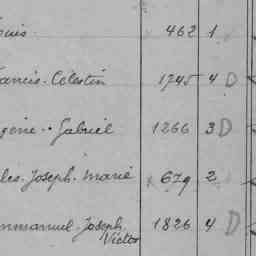 ouis 462 1
rancis. Célestin 1745 4 D
gène.. Gabriel 1266 3 D
les. Joseph. Marie x 679 2
mmanuel. Joseph. 1826 4 D
Victor